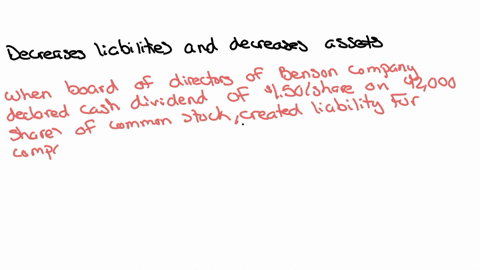 Decreases liabilities and decreases assets
when board of directors of Benson company
declared cash dividend of $1.50/share on 42,000
shares of common stock, created liability for
compr